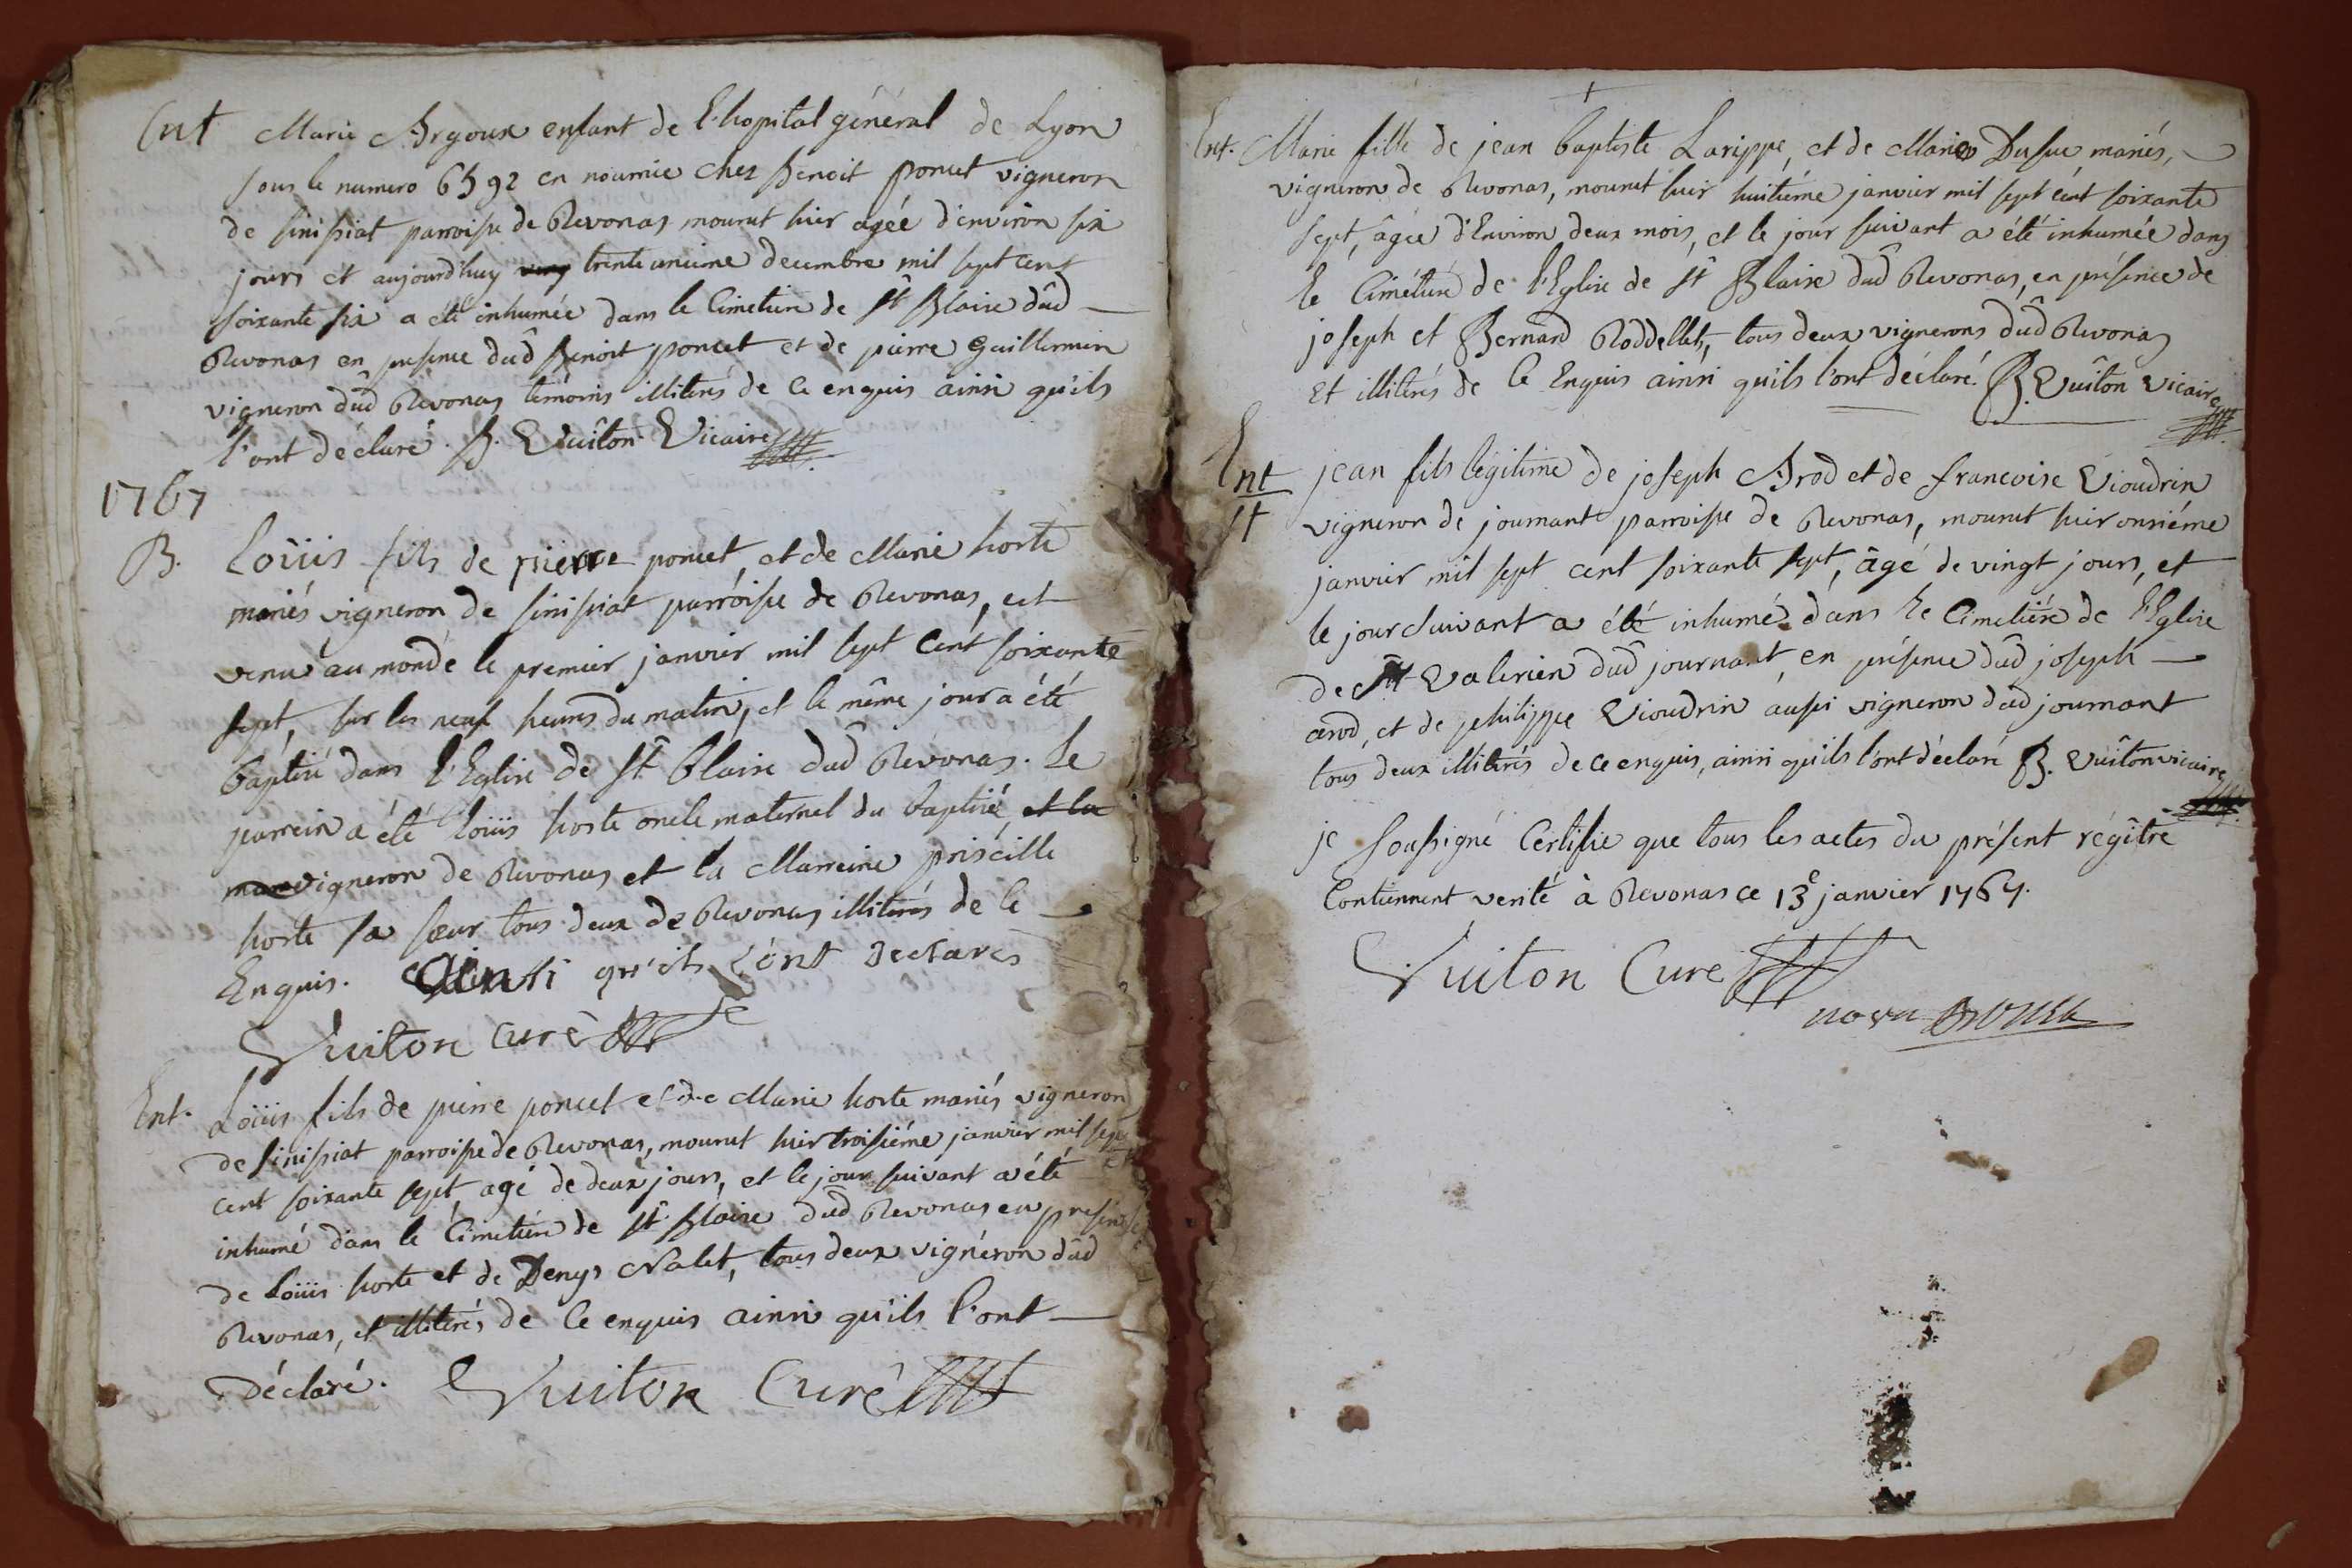 Ent Marie Argoux enfant de l'hopital général de Lyon
sous le numero 6592 en nourrice chez Benoit poncet vigneron
de sinissiat parroisse de Revonas mourut hier agée d'environ six
jours et aujourd'huy trente unieme decembre mil sept cent
soixante six a été inhumée dans le Cimetiere de St Blaise dud
Revonas en presence dud Benoit poncet et de pierre Guillermin
vigneron dud Revonas témoins illiterés de ce enquis ainsi qu'ils
l'ont déclaré. B. Vuiton Vicaire
1767
B. Loüis fils de pierre poncet, et de Marie horte
mariés vigneron de sinissiat parroisse de Revonas, est
venu au monde le premier janvier mil sept cent soixante
sept, sur les neuf heures du matin, et le même jour a été
baptisé dans l'Eglise de St blaise dud Revonas. Le
parrein a été Loüis horte oncle maternel du baptisé et la
mar vigneron de Revonas et la Marreine priscille
horte sa sœur tous deux de Revonas illiterés de ce
Enquis. Ainsi qu'ils l'ont Declarés
Vuiton curé
Ent. Loüis fils de pierre poncet et de Marie horte mariés vigneron
de sinissiat parroisse de Revonas, mourut hier troisiéme janvier mil sept
cent soixante sept agé de deux jours, et le jour suivant a été
inhumé dans le Cimetiere de St Blaise dud Revonas en presence
de Loüis horte et de Denys Nalet, tous deux vigneron dud
Revonas, et illiterés de ce enquis ainsi qu'ils l'ont
déclaré. Vuiton Curé
Ent. Marie fille de jean baptiste Larippe, et de Marie Dufue mariés,
vigneron de Revonas, mourut hier huitiéme janvier mil sept cent soixante
sept, âgée d'Environ deux mois, et le jour suivant a été inhumée dans
le Cimétiere de l'Eglise de St Blaise dud Revonas, en présence de
joseph et Bernard Roddellet, tous deux vignerons dud Revonas
et illiterés de ce Enquis ainsi qu'ils l'ont déclaré. B. Vuiton Vicaire
Ent jean fils légitime de joseph Arod et de francoise Vioudrin
st vigneron de journant parroisse de Revonas, mourut hier onziéme
janvier mil sept cent soixante sept, âgé de vingt jours, et
le jour suivant a été inhumé dans le Cimetiére de l'Eglise
de St Valerien dud journant, en présence dud joseph
arod, et de philippe Vioudrin aussi vigneron dud journant
tous deux illiterés de ce enquis, ainsi qu'ils l'ont déclaré B. Vuiton vicaire
je soussigné Certifie que tous les actes du présent régître
Contiennent verité à Revonas ce 13e janvier 1767.
Vuiton Curé